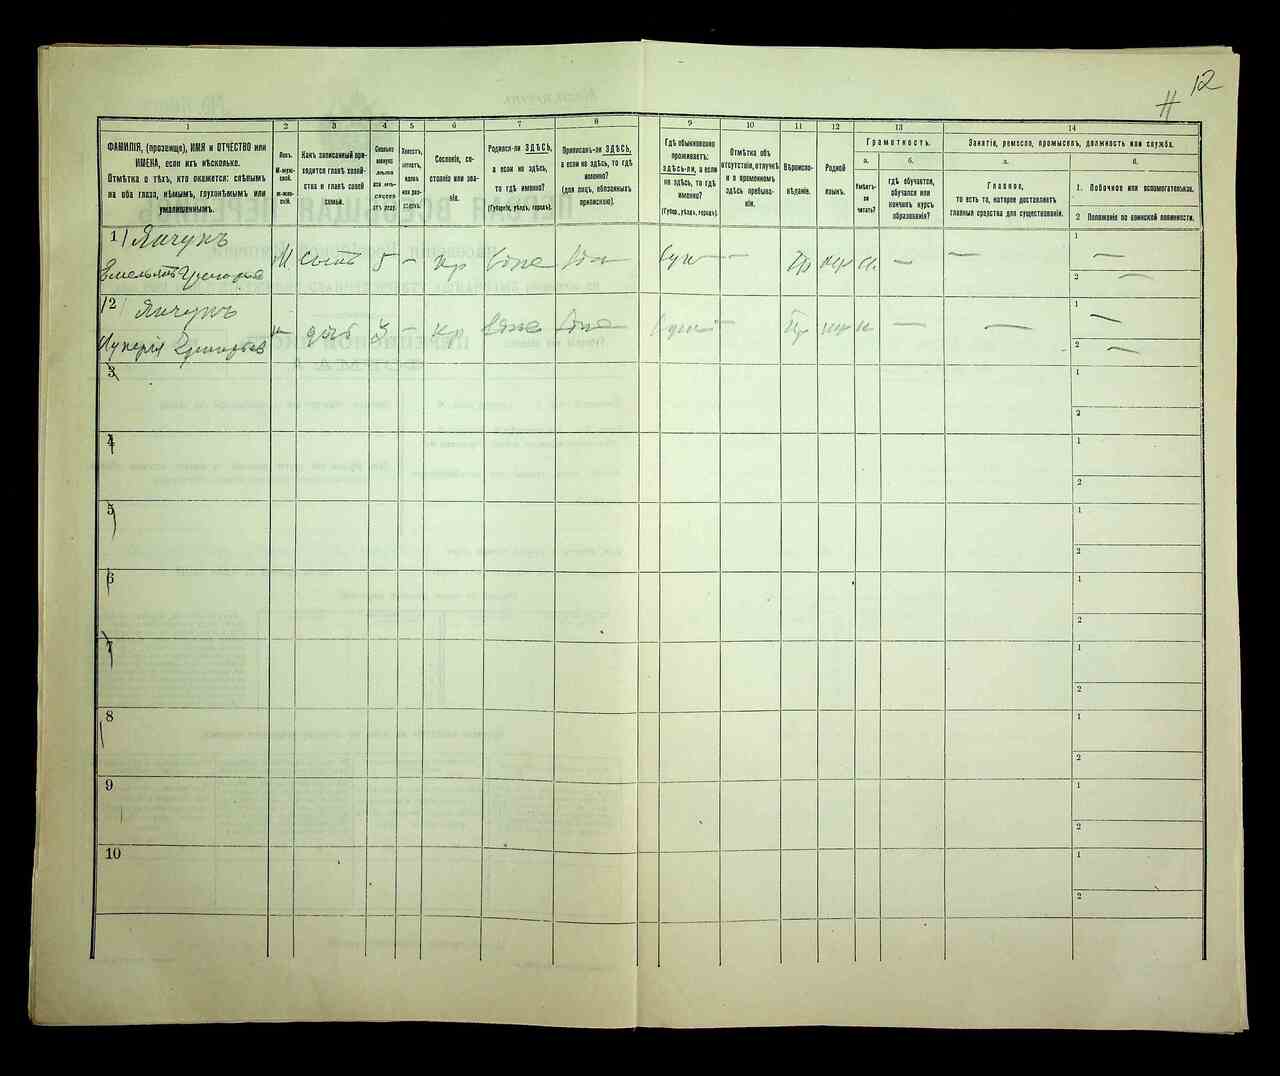 12
1
2
3
4
5
6
7
8
9
10
11
12
13
14
ФАМИЛІЯ, (прозвище), ИМЯ и ОТЧЕСТВО или
ИМЕНА, если ихъ нѣсколько.
Отмѣтка о тѣхъ, кто окажется: слѣпымъ
на оба глаза, нѣмымъ, глухонѣмымъ или
умалишеннымъ.
Полъ.
М-муж-
ской.
Ж-жен-
скій.
Какъ записанный при-
ходится главѣ хозяй-
ства и главѣ своей
семьи.
Сколько
минуло
лѣтъ
или мѣс-
яцевъ
отъ роду.
Холостъ,
женатъ,
вдовъ
или раз-
веденъ.
Сословіе, со-
стояніе или зва-
ніе.
Родился-ли ЗДѢСЬ,
а если не здѣсь,
то гдѣ именно?
(Губернія, уѣздъ, городъ).
Приписанъ-ли ЗДѢСЬ,
а если не здѣсь, то гдѣ
именно?
(для лицъ, обязанныхъ
припискою).
Гдѣ обыкновенно
проживаетъ:
здѣсь-ли, а если
не здѣсь, то гдѣ
именно?
(Губер., уѣзд., городъ).
Отмѣтка объ
отсутствіи, отлучкѣ
и о временномъ
здѣсь пребыва-
ніи.
Вѣроиспо-
вѣданіе.
Родной
языкъ.
Грамотность.
а.
Умѣетъ-
ли
читать?
б.
гдѣ обучается,
обучался или
кончилъ курсъ
образованія?
Занятіе, ремесло, промыселъ, должность или служба.
а.
Главное,
то есть то, которое доставляетъ
главныя средства для существованія.
б.
1. Побочное или вспомогательное.
2 Положеніе по воинской повинности.
1 Янчукъ
Емельянъ М сынъ 5 – кр – –
1 –
2 –
2 Янчукъ
дочь 3 – кр – – –
1 –
2 –
3
1
2
4
1
2
5
1
2
6
1
2
7
1
2
8
1
2
9
1
2
10
1
2